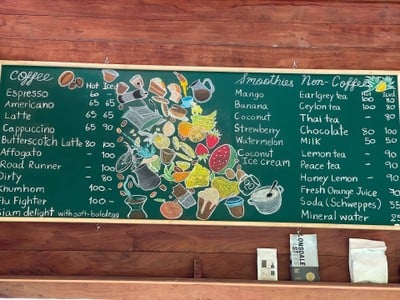 Coffee
Hot Iced
Espresso 60 -
Americano 65 65
Latte 65 65
Cappuccino 65 90
Butterscotch Latte 80 100
Affogato 100 -
Road Runner - 100
Dirty - 80
Khumhom 100 -
Flu Fighter 100 -
Siam delight with soft-boiled egg
Smoothies
Mango
Banana
Coconut
Strewberry
Watermelon
Coconut
Ice cream
Non-Coffee
Hot Iced
Earlgrey tea 100 80
Ceylon tea 100 80
Thai tea - 80
Chocolate 80 100
Milk 50 50
Lemon tea - 90
Peace tea - 90
Honey Lemon - 90
Fresh Orange Juice 70
Soda (Schweppes) 55
Mineral water 25
LONSDALE